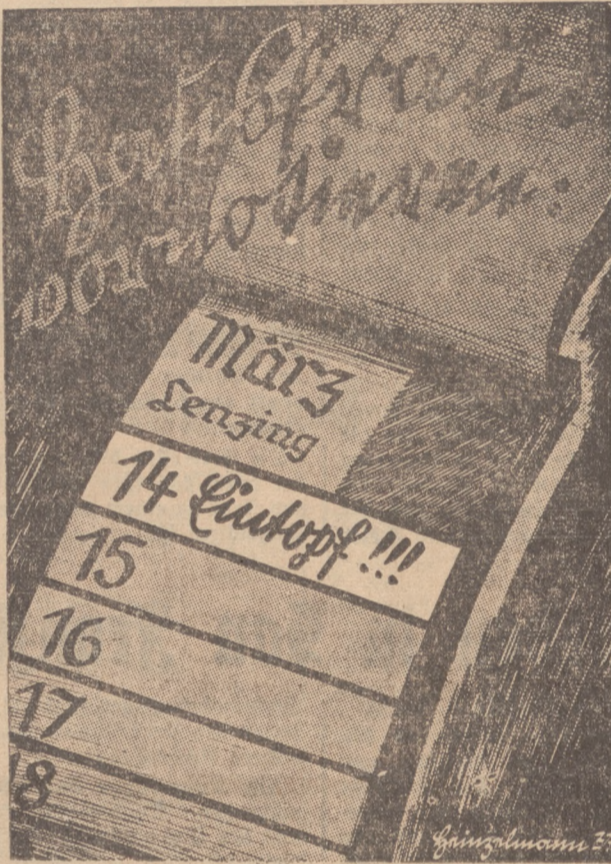 Hausfrauen
vornotieren:
März
Lenzing
14 Eintopf!!!
15
16
17
18
Heinzelmann 37